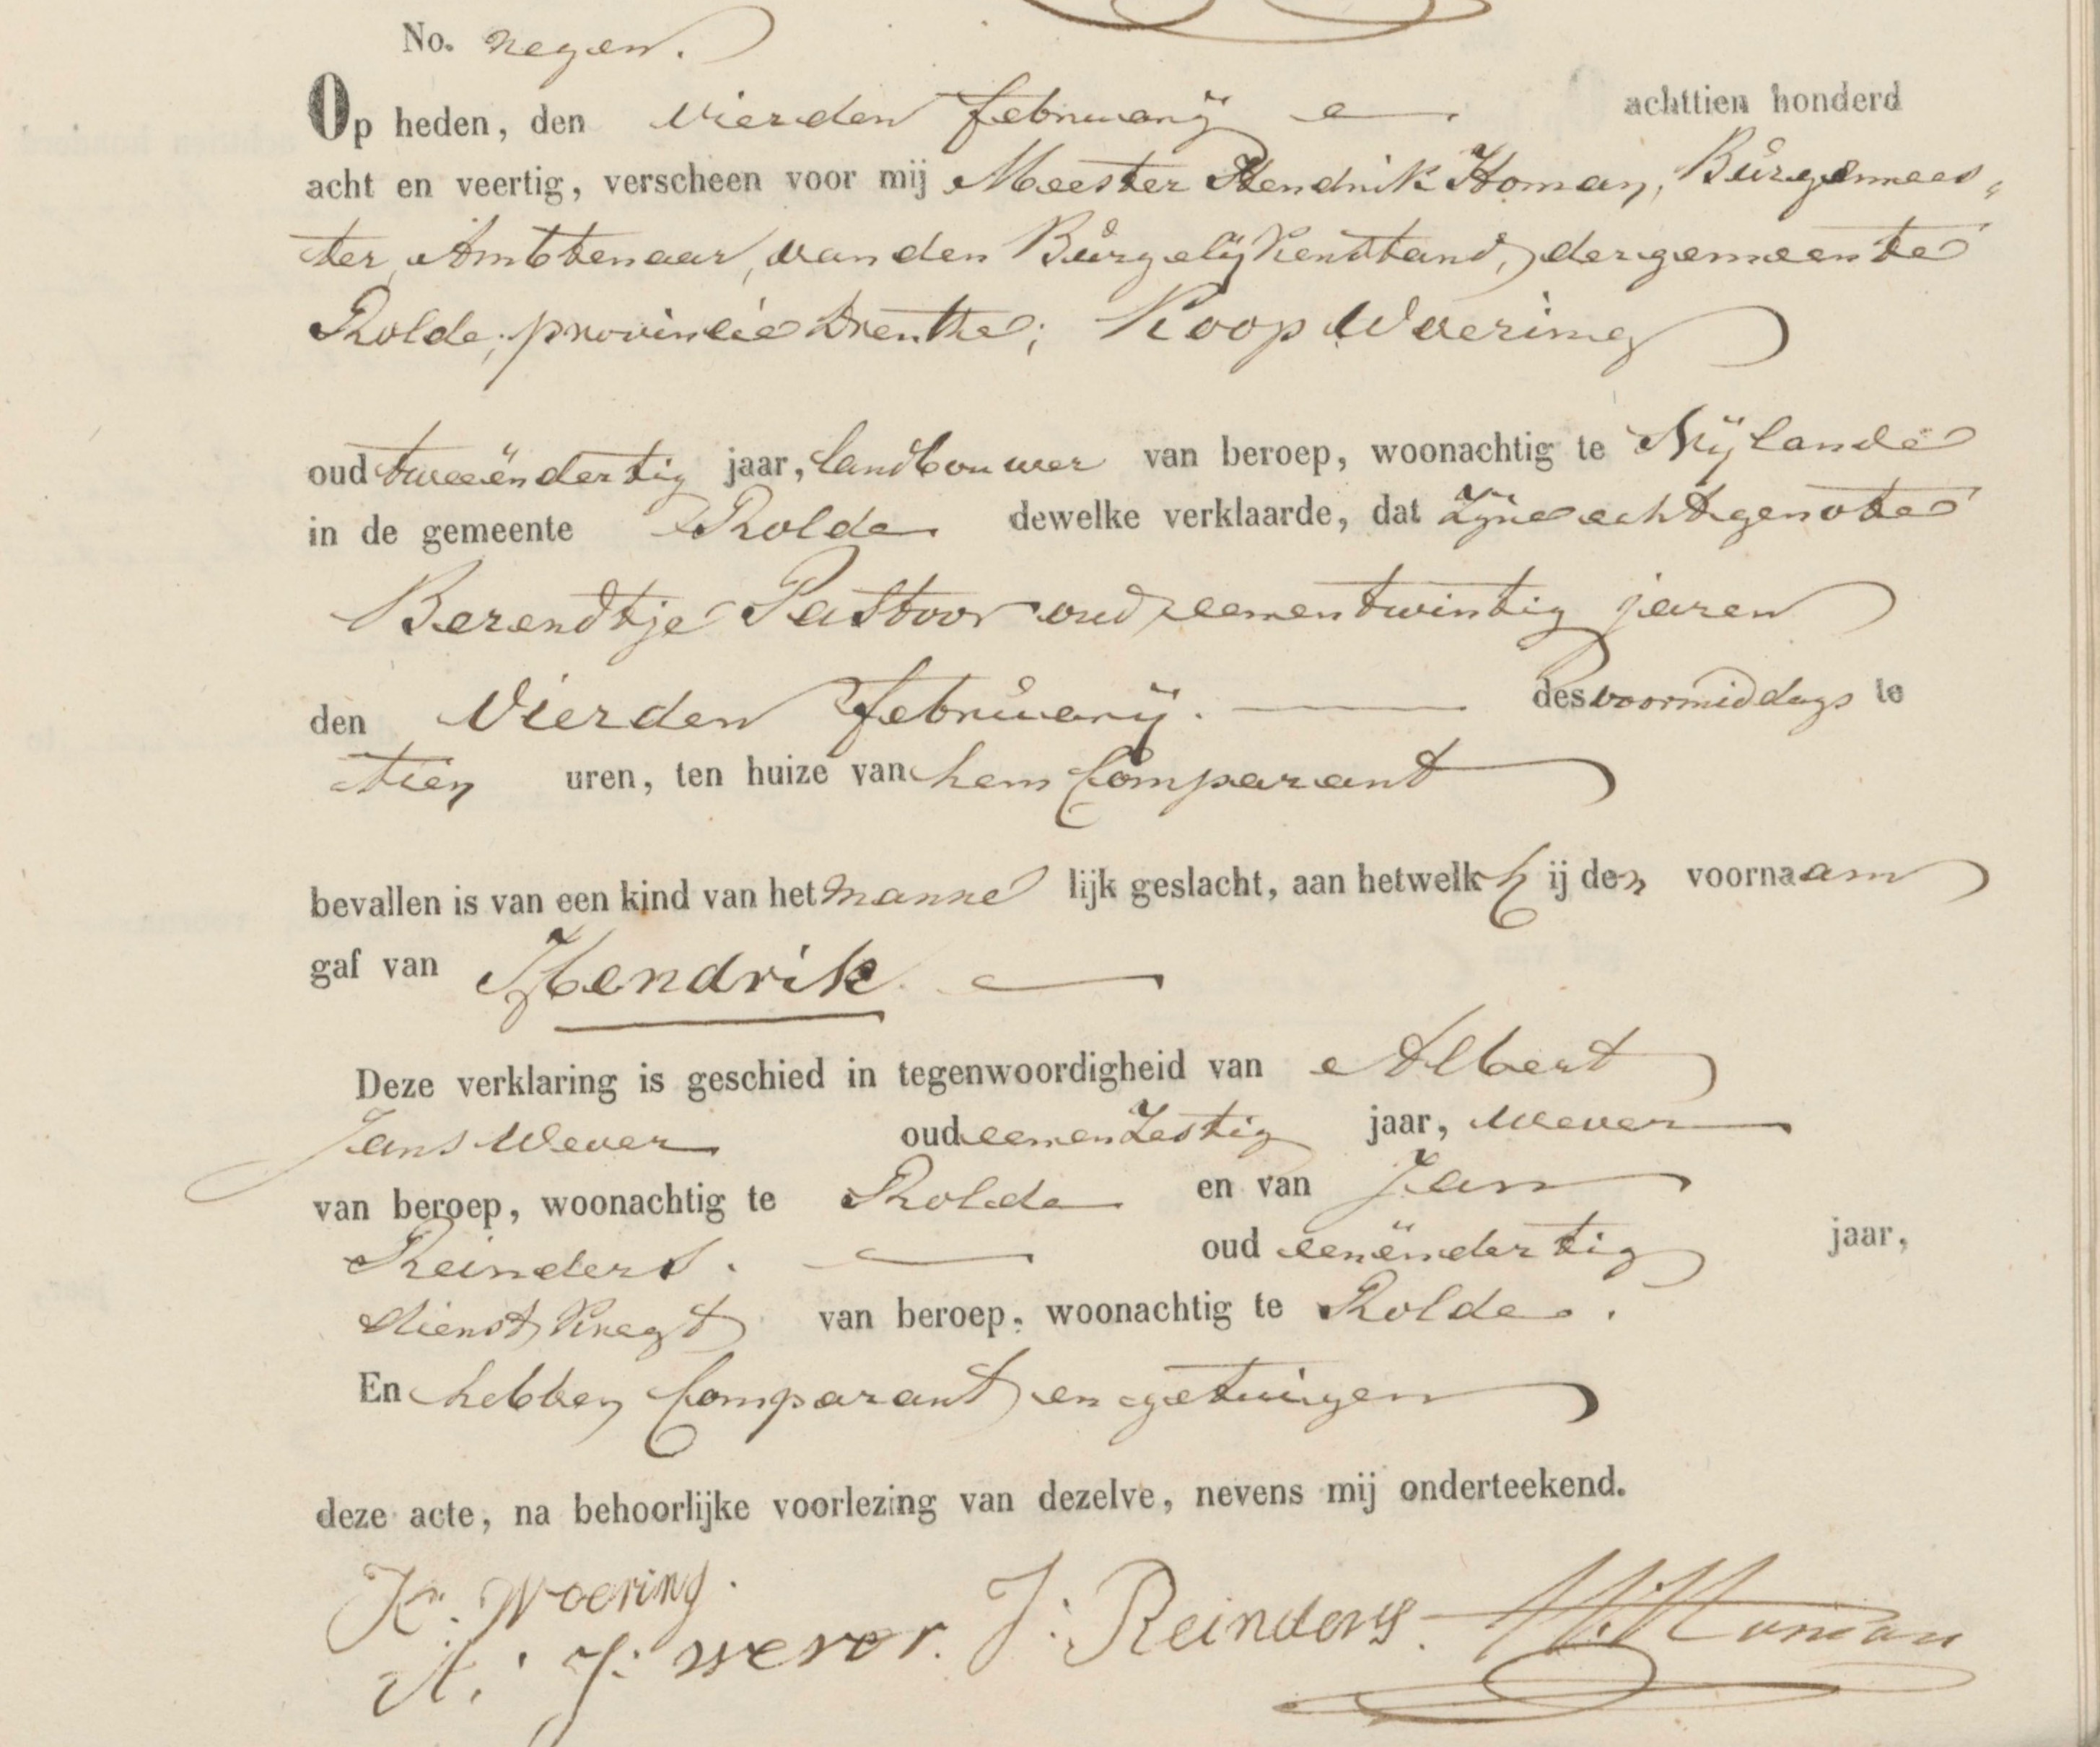 No. negen.
Op heden, den vierden februarij achttien honderd
acht en veertig, verscheen voor mij Meester Hendrik Homan, Burgemees-
ter, Ambtenaar, van den Burgelijkenstand, der gemeente
Rolde, provincie Drenthe; Koop Woering
oud tweeëndertig jaar, landbouwer van beroep, woonachtig te Nijlande
in de gemeente Rolde dewelke verklaarde, dat zijne echtgenote
Berendtje Pastoor oud eenentwintig jaren
den Vierden februarij. des voormiddags te
tien uren, ten huize van hem Comparant
bevallen is van een kind van het manne lijk geslacht, aan hetwelk hij den voornaam
gaf van Hendrik
Deze verklaring is geschied in tegenwoordigheid van Albert
Jans Wever oud eenenzestig jaar, wever
van beroep, woonachtig te Rolde en van Jan
Reinders. oud eenëndertig jaar,
dienstknegt van beroep, woonachtig te Rolde.
En hebben Comparant en getuigen
deze acte, na behoorlijke voorlezing van dezelve, nevens mij onderteekend.
K. Woering.
A. J. wever. J. Reinders. H. Homan